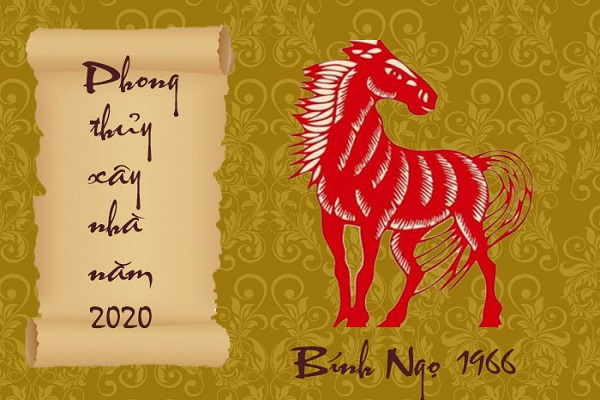 Phong
thủy
xây
nhà
năm
2020
Bính Ngọ 1966